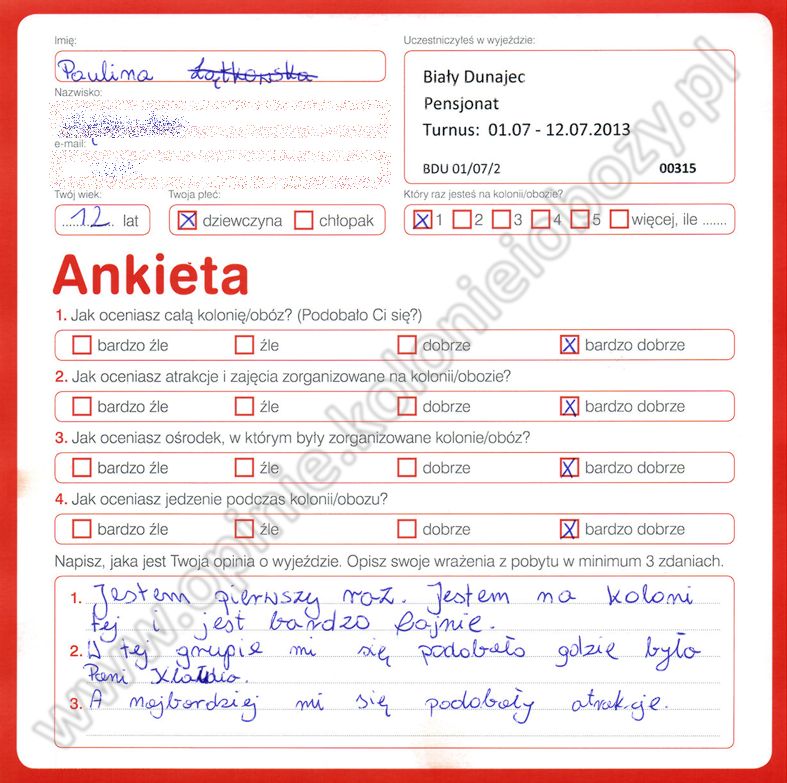 Imię:
Paulina
Uczestniczyłeś w wyjeździe:
Biały Dunajec
Pensjonat
Turnus: 01.07 - 12.07.2013
BDU 01/07/2 00315
Nazwisko:
e-mail:
Twój wiek:
12 lat
Twoja płeć:
dziewczyna chłopak
Który raz jesteś na kolonii/obozie?
1 2 3 4 5 więcej, ile .......
Ankieta
1. Jak oceniasz całą kolonię/obóz? (Podobało Ci się?)
bardzo źle źle dobrze bardzo dobrze
2. Jak oceniasz atrakcje i zajęcia zorganizowane na kolonii/obozie?
bardzo źle źle dobrze bardzo dobrze
3. Jak oceniasz ośrodek, w którym były zorganizowane kolonie/obóz?
bardzo źle źle dobrze bardzo dobrze
4. Jak oceniasz jedzenie podczas kolonii/obozu?
bardzo źle źle dobrze bardzo dobrze
Napisz, jaka jest Twoja opinia o wyjeździe. Opisz swoje wrażenia z pobytu w minimum 3 zdaniach.
1. Jestem pierwszy raz. Jestem na koloni
tej i jest bardzo fajnie.
2. W tej grupie mi się podobało gdzie było
Pani Klaudia.
3. A najbardziej mi się podobały atrakcje.
www.opinie.kolonieiobozy.pl